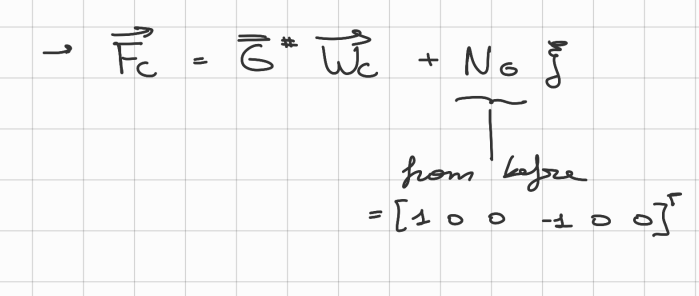 → F⃗_C = G̿^# W⃗_C + N_G ξ
from before
= [1 0 0 -1 0 0]^T